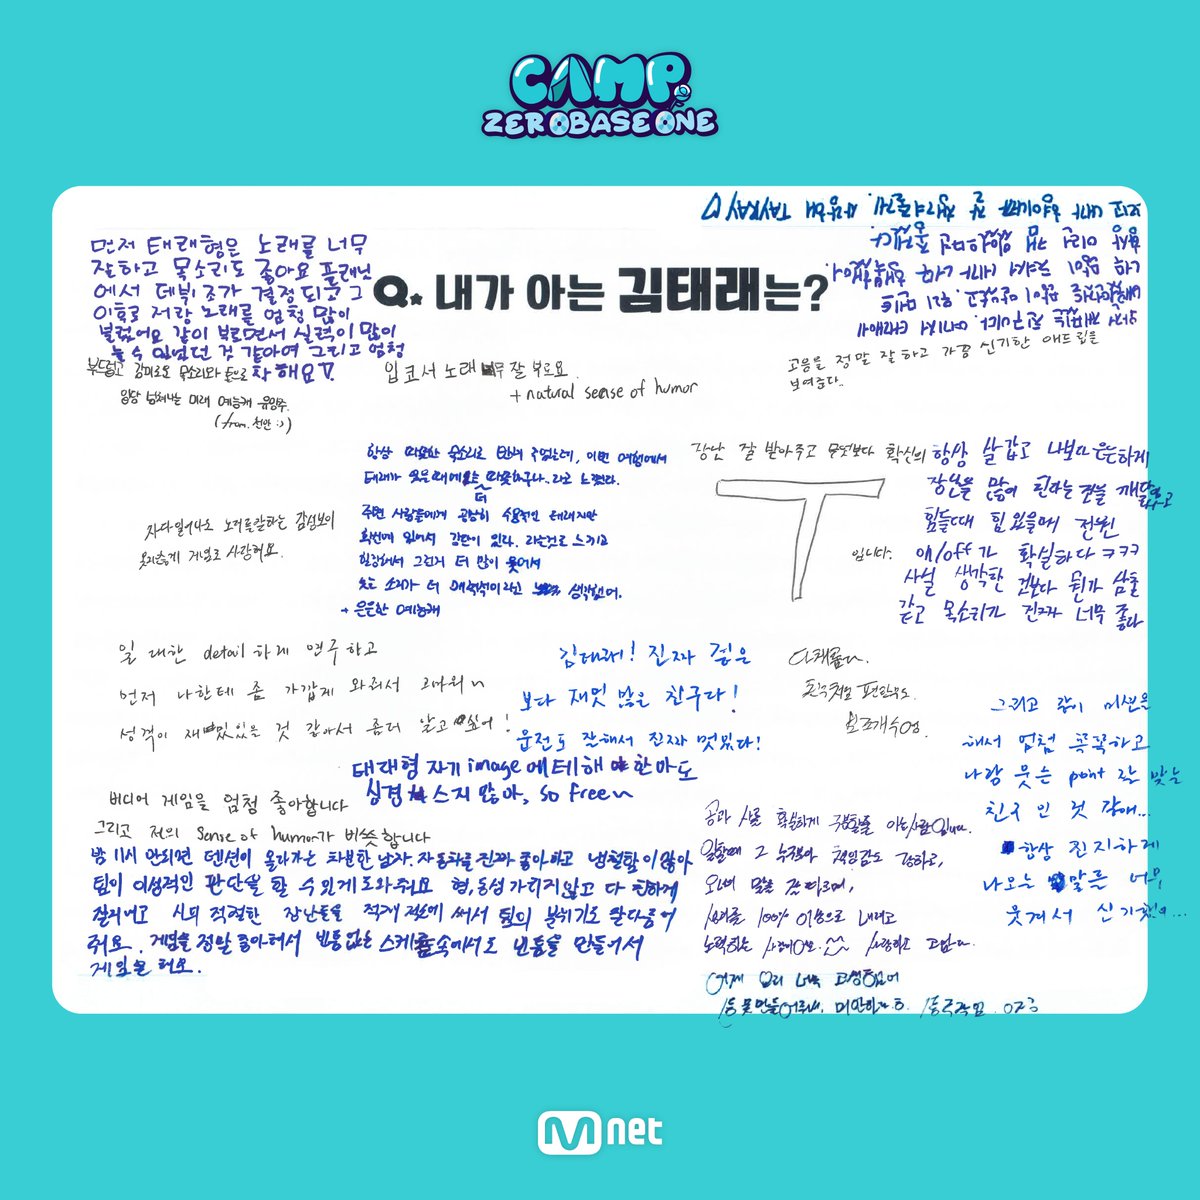 CAMP
ZEROBASEONE
Q. 내가 아는 김태래는?
먼저 태래형은 노래를 너무
잘하고 목소리도 좋아요 플래닛
에서 데뷔 조가 결정되고 그
이후로 저랑 노래를 엄청 많이
불렀어요 같이 부르면서 실력이 많이
늘 수 있었던 것 같아여 그리고 엄청
착해요
부드럽고 감미로운 목소리와
미래 예능캐 유망주.
(from. 천안 :))
입 코서 노래 잘 부르요.
+ natural sense of humor
TAYRAY
고음을 정말 잘 하고 가끔 신기한 애드립을
보여줍다..
항상 따뜻한 목소리로 반겨 주었는데, 이번 여행에서
태래가 있을 때에는 더 따뜻하구나.. 라고 느꼈다.
주변 사람들에게 굉장히 수용적인 태래지만
확신에 있어서 강단이 있다. 라는것로 느끼고
웃는 소리가 더 매력적이라고 생각했어.
+ 은은한 예능캐
자다 일어나도 노래를 잘하는 감성보이
장난 잘 받아주고 무엇보다 확신의
T
입니다.
항상 살갑고 나보다 은은하게
장난을 많이 친다는 것을 깨달았고
힘들때 힘 있을때 전원
on/off가 확실하다 ㅋㅋㅋ
사실 생각한 것보다 뭔가 삼촌
같고 목소리가 진짜 너무 좋다
일 대한 detail 하게 연주하고
먼저 나한테 좀 가깝게 와줘서 고마워~
성격이 재밌있을 것 같아서 좀더 알고 싶어!
김태래! 진짜 겉은
보다 재밋 많은 친구다!
운전도 잘해서 진짜 멋있다!
다채롭다.
그리고 같이 미션을
해서 엄청 꼭꼭하고
나랑 웃는 point 잘 맞는
친구 인 것 같애...
항상 진지하게
나오는 말른 너무
웃겨서 신기했어...
태래형 자기 image에 대해 한마도
신경 쓰지 않아, so free~
비디어 게임을 엄청 좋아합니다
그리고 저의 sense of humor가 비슷합니다
밤 11시 안되면 텐션이 올라가는 차분한 남자. 자동차를 진짜 좋아하고 냉철함이 많아
팀이 이성적인 판단을 할 수 있게 도와줘요 형, 동생 가리지않고 다 친하게
잘지내고 시의 적절한 장난들을 적재적소에 써서 팀의 분위기도 잘 다루어
줘요. 게임을 정말 좋아해서 빈틈없는 스케줄 속에서도 빈틈을 만들어서
게임을 해요.
공과 사를 확실하게 구분할줄 아는 사람입니다.
일할때 그 누구보다 책임감도 강하고,
노력하는 사람이에요. 사랑하고 고맙다.
어제 요리 너무 고생했어
Mnet